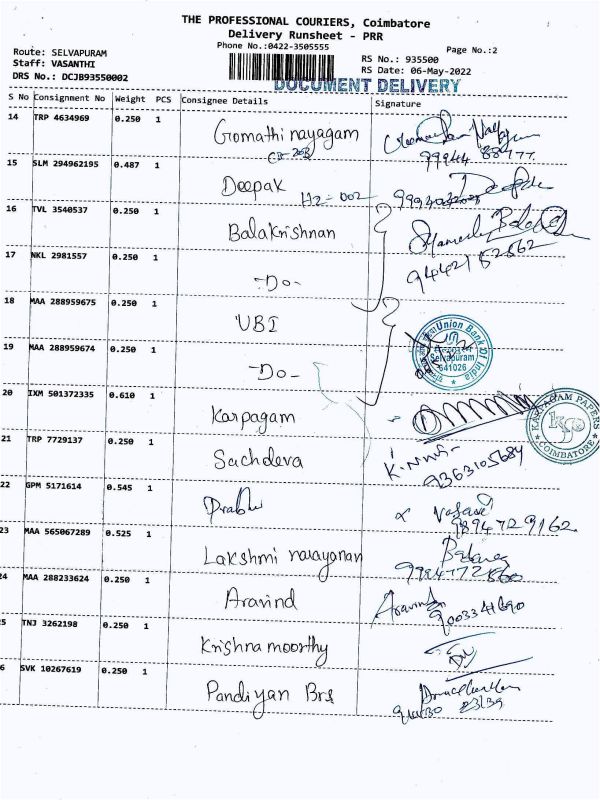 THE PROFESSIONAL COURIERS, Coimbatore
Delivery Runsheet - PRR
Phone No.:0422-3505555
Page No.:2
Route: SELVAPURAM
Staff: VASANTHI
DRS No.: DCJB93550002
RS No.: 935500
RS Date: 06-May-2022
DOCUMENT DELIVERY
S No Consignment No Weight PCS Consignee Details Signature
14 TRP 4634969 0.250 1 Gomathi nayagam
99944 88477
15 SLM 294962195 0.487 1 Deepak H2-002
16 TVL 3540537 0.250 1 Balakrishnan
9442152562
17 NKL 2981557 0.250 1 -Do-
18 MAA 288959675 0.250 1 UBI
Union Bank Of India
Selvapuram
641026
19 MAA 288959674 0.250 1 -Do-
20 IXM 501372335 0.610 1 Karpagam
KARPAGAM PAPERS
COIMBATORE
21 TRP 7729137 0.250 1 Sachdeva
9363105684
22 GPM 5171614 0.545 1 Prabhu
9894729162
23 MAA 565067289 0.525 1 Lakshmi narayanan
24 MAA 288233624 0.250 1 Aravind Aravind
5 TNJ 3262198 0.250 1 Krishna moorthy
6 SVK 10267619 0.250 1 Pandiyan Brs